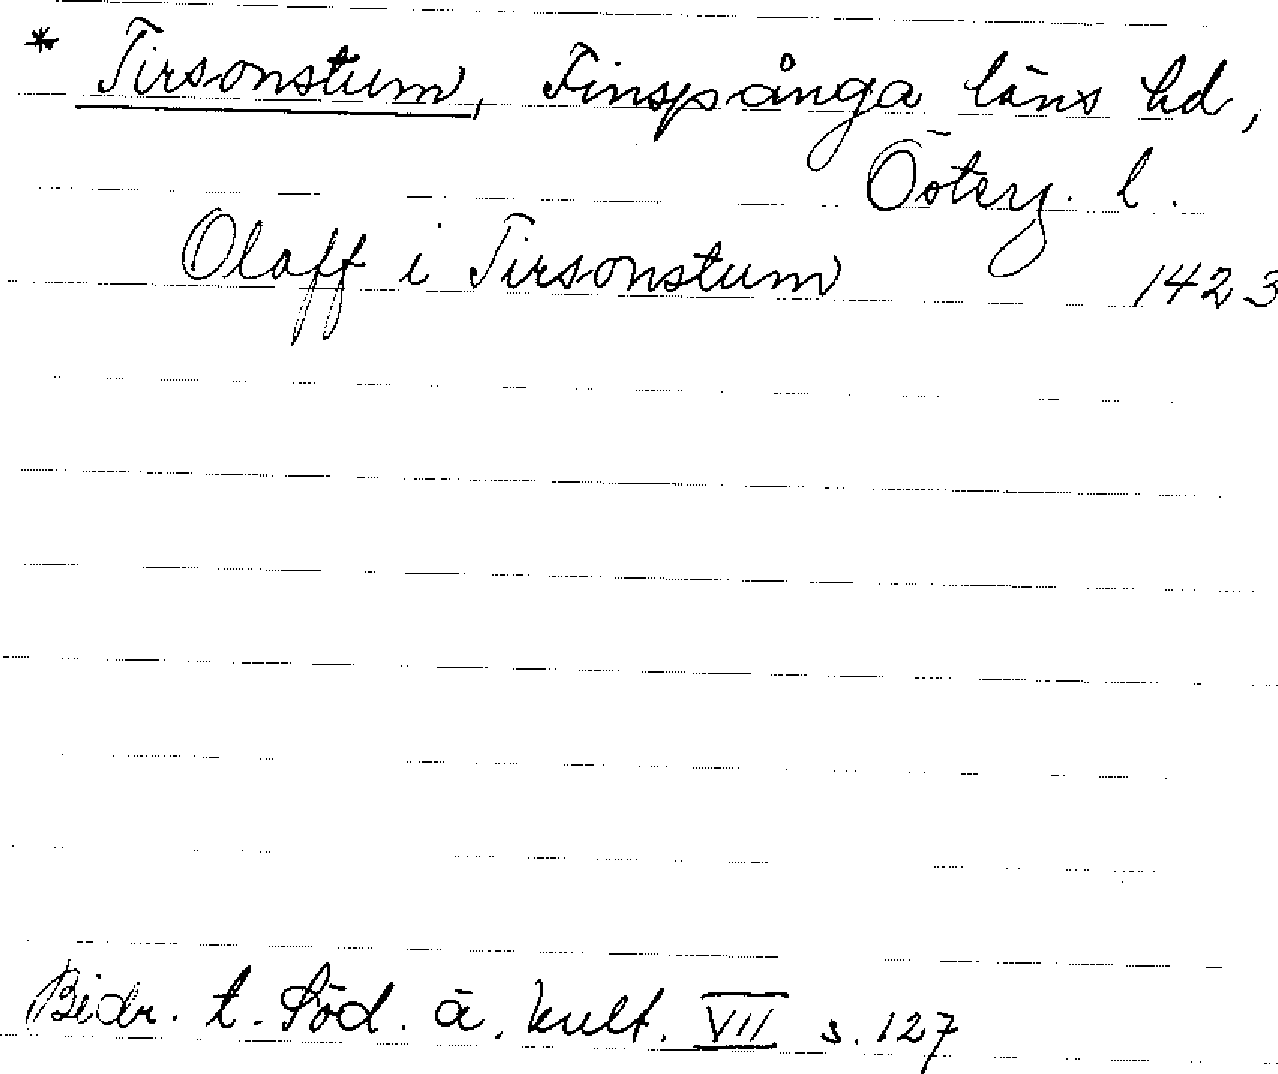 * Tirsonstum, Finspånga läns hd,
Österg. l.
Olaff i Tirsonstum 1423
Bidr. t. Söd. ä. kult. VII s. 127